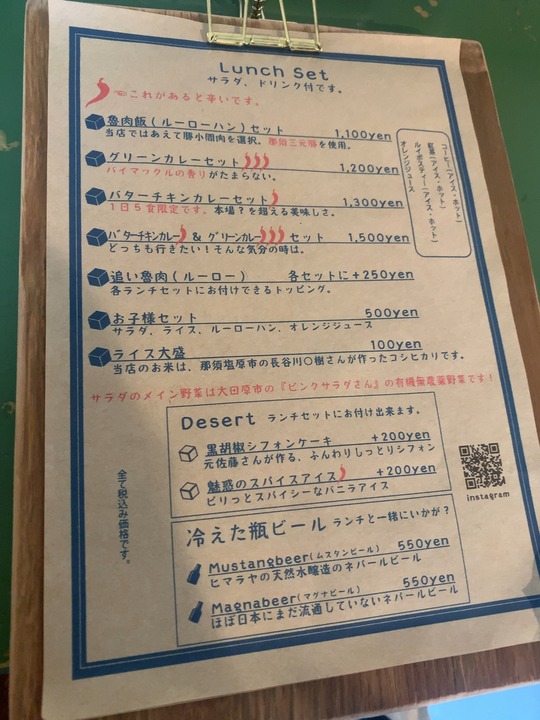 Lunch Set
サラダ、ドリンク付です。
☜これがあると辛いです。
魯肉飯(ルーローハン)セット 1,100yen
当店ではあえて豚小間肉を選択。那須三元豚を使用。
グリーンカレーセット 1,200yen
バイマックルの香りがたまらない。
バターチキンカレーセット 1,300yen
1日5食限定です。本場?を超える美味しさ。
バターチキンカレー & グリーンカレー セット 1,500yen
どっちも行きたい!そんな気分の時は。
追い魯肉(ルーロー) 各セットに+250yen
各ランチセットにお付けできるトッピング。
お子様セット 500yen
サラダ、ライス、ルーローハン、オレンジジュース
ライス大盛 100yen
当店のお米は、那須塩原市の長谷川〇樹さんが作ったコシヒカリです。
コーヒー(アイス・ホット)
紅茶(アイス・ホット)
ルイボスティー(アイス・ホット)
オレンジジュース
サラダのメイン野菜は大田原市の『ピンクサラダさん』の有機無農薬野菜です!
Desert ランチセットにお付け出来ます。
黒胡椒シフォンケーキ +200yen
元佐藤さんが作る、ふんわりしっとりシフォン
魅惑のスパイスアイス +200yen
ピリっとスパイシーなバニラアイス
instagram
全て税込み価格です。
冷えた瓶ビール ランチと一緒にいかが?
Mustangbeer(ムスタンビール) 550yen
ヒマラヤの天然水醸造のネパールビール
Magnabeer(マグナビール) 550yen
ほぼ日本にまだ流通していないネパールビール